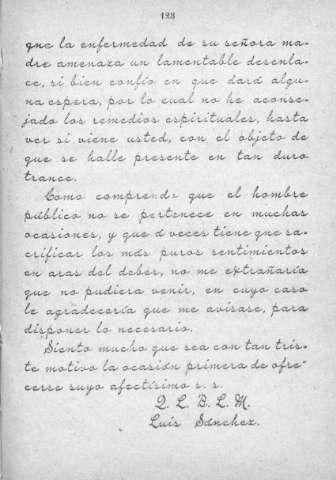 123
que la enfermedad de su señora ma-
dre amenaza un lamentable desenla-
ce, si bien confío en que dará algu-
na espera, por lo cual no he aconse-
jado los remedios espirituales, hasta
ver si viene usted, con el objeto de
que se halle presente en tan duro
trance.
Como comprendo que el hombre
público no se pertenece en muchas
ocasiones, y que á veces tiene que sa-
crificar los más puros sentimientos
en aras del deber, no me extrañaría
que no pudiera venir, en cuyo caso
le agradecería que me avisase, para
disponer lo necesario.
Siento mucho que sea con tan tris-
te motivo la ocasión primera de ofre-
cerse suyo afectísimo s. s.
Q. L. B. L. M.
Luis Sánchez.